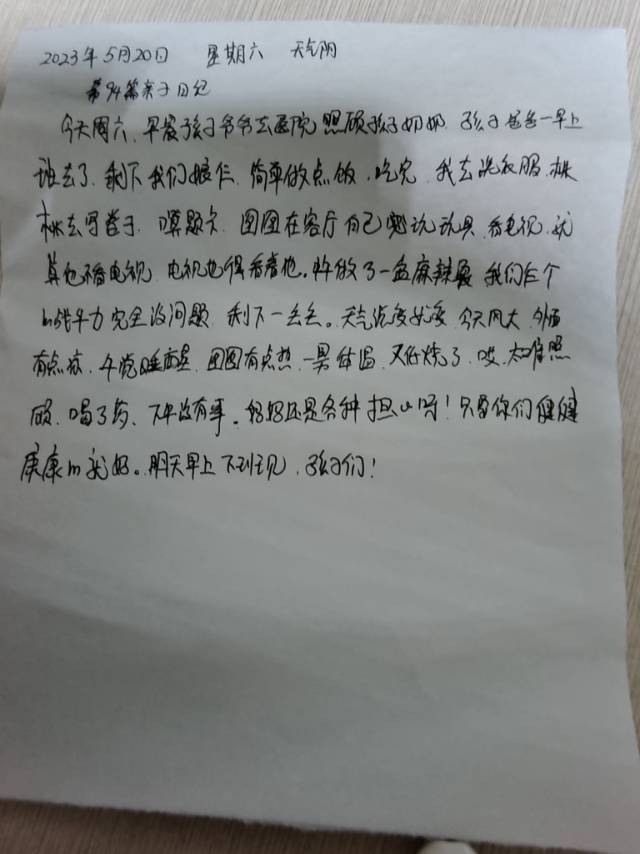 2023年5月20日 星期六 天气阴
第94篇亲子日记
今天周六、早晨孩子爷爷去医院照顾孩子奶奶 孩子爸爸一早上
班去了、剩下我们娘仨、简单做点饭、吃完、我去洗衣服、桃
桃去写卷子、算题卡、团团在客厅自己边玩玩具、看电视、就
算他不看电视、电视也得看着他。炸做了一盆麻辣 我们三个
的战斗力完全没问题、剩下一丢丢。天气说变就变、今天风大、外面
有点凉、午觉睡醒、团团有点热、一量体温、又低烧了、哎、太难照
顾、喝了药、下午没有事。妈妈还是各种担心呀！只要你们健健
康康的就好。明天早上不到现、孩子们！